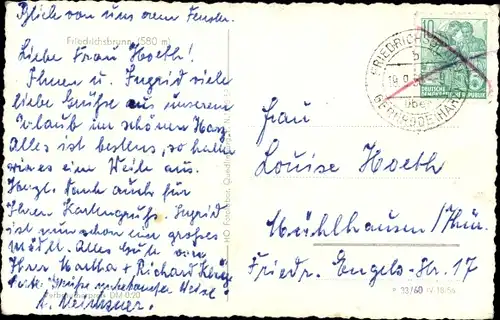 Blick von uns dem Fenster.
Friedrichsbrunn (580 m)
Liebe Frau Hoeth!
Ihnen u. Ingrid viele
liebe Grüße aus unserem
Urlaub im schönen Harz.
Alles ist bestens, so halten
wir es eine Weile aus.
Herzl. Dank auch für
Ihren Kartengruß. Ingrid
ist nun schon ein großes
Mädel. Alles Gute von
Ihrer Martha + Richard
Grüße
DM 0,20
10
DEUTSCHE
DEMOKRATISCHE
FRIEDRICHSBRUNN
b
über
GERNRODE (HARZ)
Frau
Louise Hoeth
Mühlhausen/Thür.
Friedr. Engels-Str. 17